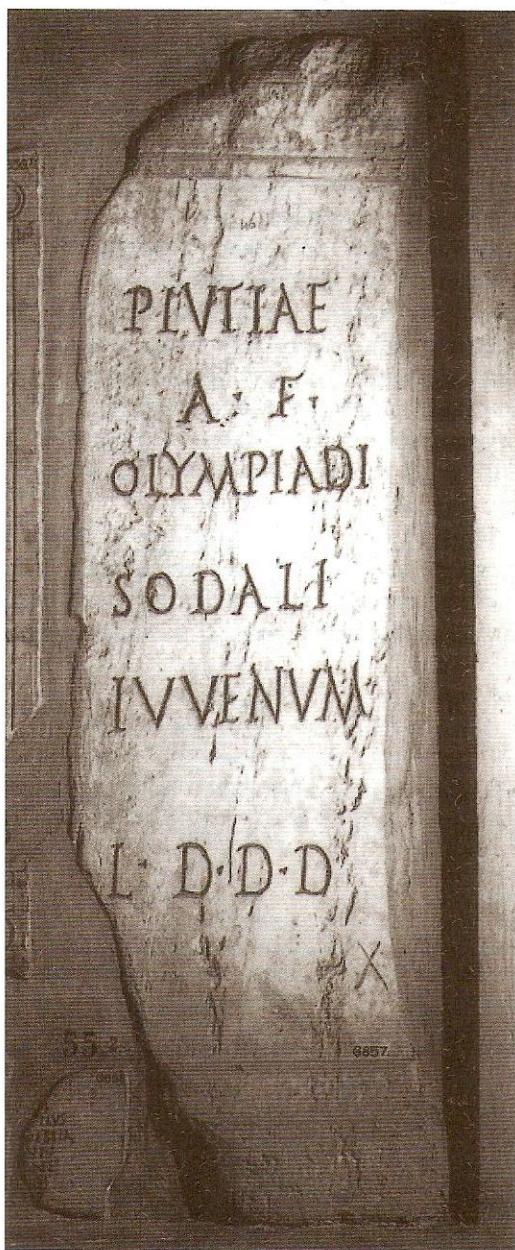 PLVTIAE
A · F ·
OLYMPIADI
SODALI
IVVENVM
L · D · D · D
X
6857